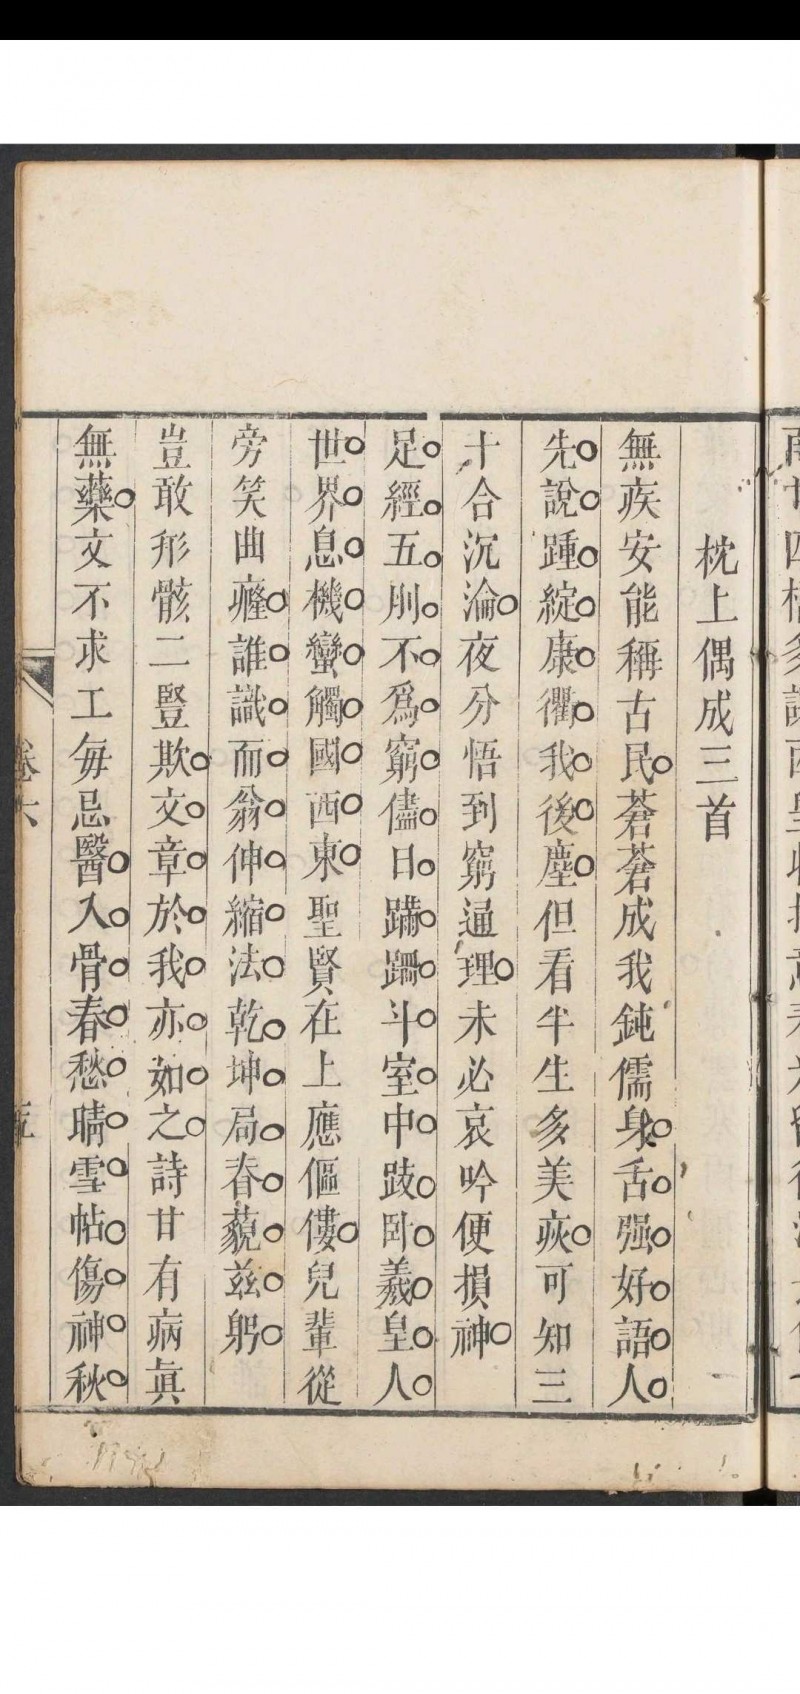 枕上偶成三首
無疾安能稱古民蒼蒼成我鈍儒身舌强好語人
先說踵綻康衢我後塵但看半生多美疢可知三
十合沉淪夜分悟到窮通理未必哀吟便損神
足經五刖不爲窮儘日蹣跚斗室中跂卧羲皇人
世界息機蠻觸國西東聖賢在上應傴僂兒輩從
旁笑曲癃誰識而翁伸縮法乾坤局春藐兹躬
豈敢形骸二豎欺文章於我亦如之詩甘有病眞
無藥文不求工每忌醫入骨春愁晴雪帖傷神秋
卷六